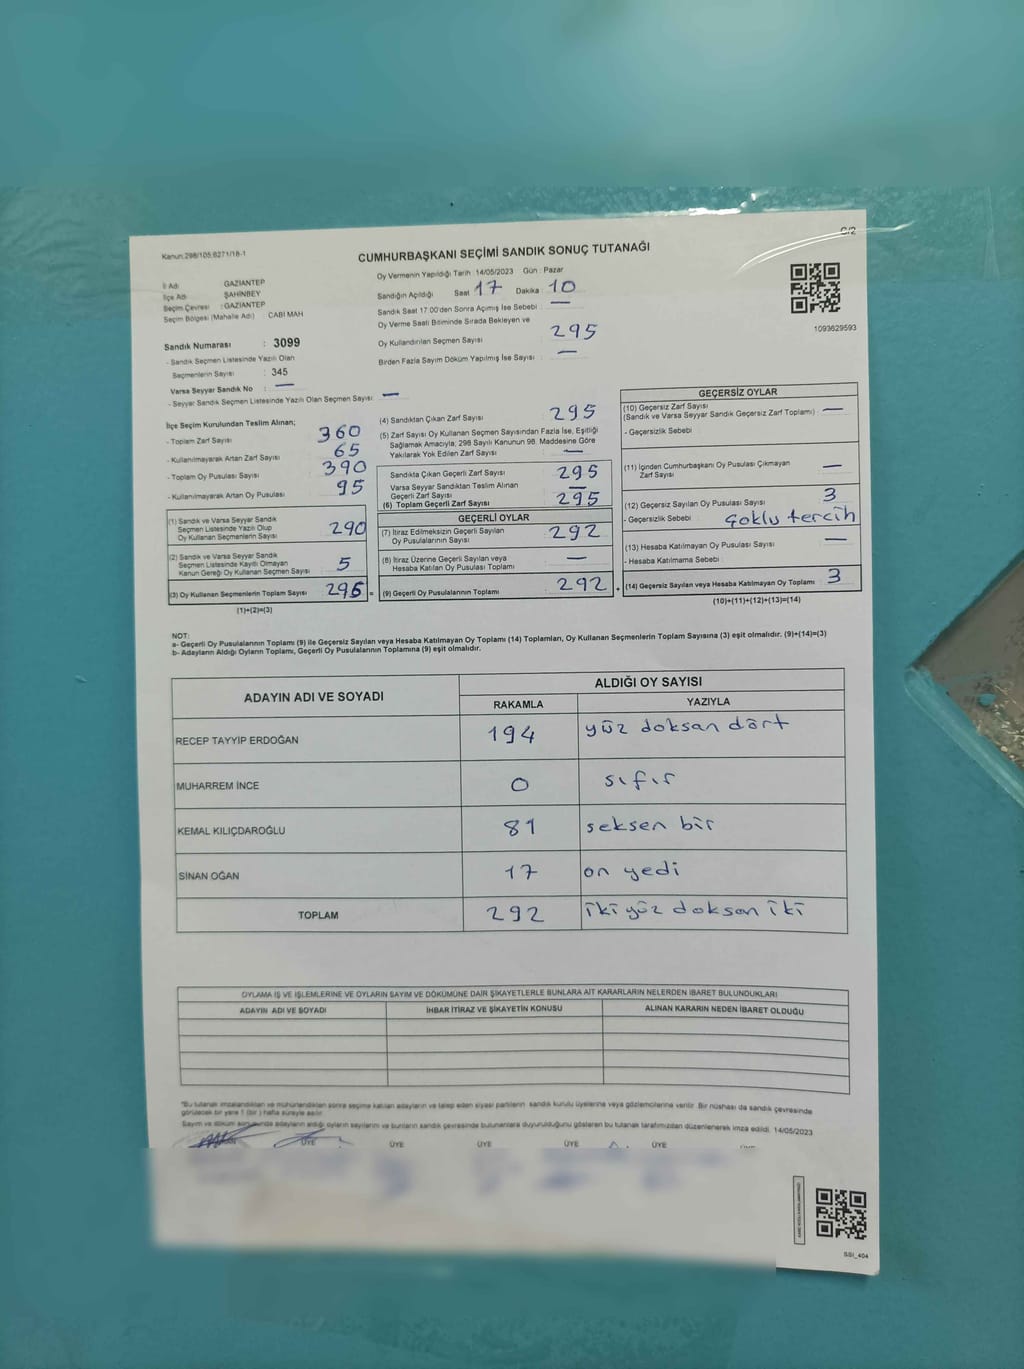 C/2
Kanun:298/105,6271/18-1
CUMHURBAŞKANI SEÇİMİ SANDIK SONUÇ TUTANAĞI
Oy Vermenin Yapıldığı Tarih : 14/05/2023 Gün : Pazar
İl Adı : GAZİANTEP
İlçe Adı : ŞAHİNBEY
Seçim Çevresi : GAZİANTEP
Seçim Bölgesi (Mahalle Adı) : CABİ MAH
Sandığın Açıldığı Saat 17 Dakika : 10
Sandık Saat 17:00'den Sonra Açımış İse Sebebi : —
Oy Verme Saati Bitiminde Sırada Bekleyen ve
Oy Kullandırılan Seçmen Sayısı : 295
Birden Fazla Sayım Döküm Yapılmış İse Sayısı : —
1093629593
Sandık Numarası : 3099
- Sandık Seçmen Listesinde Yazılı Olan
Seçmenlerin Sayısı : 345
Varsa Seyyar Sandık No : —
- Seyyar Sandık Seçmen Listesinde Yazılı Olan Seçmen Sayısı: —
İlçe Seçim Kurulundan Teslim Alınan;
- Toplam Zarf Sayısı : 360
- Kullanılmayarak Artan Zarf Sayısı : 65
- Toplam Oy Pusulası Sayısı : 390
- Kullanılmayarak Artan Oy Pusulası : 95
(1) Sandık ve Varsa Seyyar Sandık
Seçmen Listesinde Yazılı Olup
Oy Kullanan Seçmenlerin Sayısı : 290
(2) Sandık ve Varsa Seyyar Sandık
Seçmen Listesinde Kayıtlı Olmayan
Kanun Gereği Oy Kullanan Seçmen Sayısı : 5
(3) Oy Kullanan Seçmenlerin Toplam Sayısı : 295 =
(1)+(2)=(3)
(4) Sandıktan Çıkan Zarf Sayısı : 295
(5) Zarf Sayısı Oy Kullanan Seçmen Sayısından Fazla İse, Eşitliği
Sağlamak Amacıyla, 298 Sayılı Kanunun 98. Maddesine Göre
Yakılarak Yok Edilen Zarf Sayısı : —
Sandıkta Çıkan Geçerli Zarf Sayısı : 295
Varsa Seyyar Sandıktan Teslim Alınan
Geçerli Zarf Sayısı : —
(6) Toplam Geçerli Zarf Sayısı : 295
GEÇERLİ OYLAR
(7) İtiraz Edilmeksizin Geçerli Sayılan
Oy Pusulalarının Sayısı : 292
(8) İtiraz Üzerine Geçerli Sayılan veya
Hesaba Katılan Oy Pusulası Toplamı : —
(9) Geçerli Oy Pusulalarının Toplamı : 292 +
GEÇERSİZ OYLAR
(10) Geçersiz Zarf Sayısı
(Sandık ve Varsa Seyyar Sandık Geçersiz Zarf Toplamı) : —
- Geçersizlik Sebebi :
(11) İçinden Cumhurbaşkanı Oy Pusulası Çıkmayan
Zarf Sayısı : —
(12) Geçersiz Sayılan Oy Pusulası Sayısı : 3
- Geçersizlik Sebebi : Çoklu tercih
(13) Hesaba Katılmayan Oy Pusulası Sayısı : —
- Hesaba Katılmama Sebebi :
(14) Geçersiz Sayılan veya Hesaba Katılmayan Oy Toplamı : 3
(10)+(11)+(12)+(13)=(14)
NOT:
a- Geçerli Oy Pusulalarının Toplamı (9) ile Geçersiz Sayılan veya Hesaba Katılmayan Oy Toplamı (14) Toplamları, Oy Kullanan Seçmenlerin Toplam Sayısına (3) eşit olmalıdır. (9)+(14)=(3)
b- Adayların Aldığı Oyların Toplamı, Geçerli Oy Pusulalarının Toplamına (9) eşit olmalıdır.
ADAYIN ADI VE SOYADI ALDIĞI OY SAYISI
RAKAMLA YAZIYLA
RECEP TAYYİP ERDOĞAN 194 yüz doksan dört
MUHARREM İNCE 0 sıfır
KEMAL KILIÇDAROĞLU 81 seksen bir
SİNAN OĞAN 17 on yedi
TOPLAM 292 iki yüz doksan iki
OYLAMA İŞ VE İŞLEMLERİNE VE OYLARIN SAYIM VE DÖKÜMÜNE DAİR ŞİKAYETLERLE BUNLARA AİT KARARLARIN NELERDEN İBARET BULUNDUKLARI
ADAYIN ADI VE SOYADI İHBAR İTİRAZ VE ŞİKAYETİN KONUSU ALINAN KARARIN NEDEN İBARET OLDUĞU
*Bu tutanak imzalandıktan ve mühürlendikten sonra seçime katılan adayların ve talep eden siyasi partilerin sandık kurulu üyelerine veya gözlemcilerine verilir. Bir nüshası da sandık çevresinde
görülecek bir yere 1 (bir ) hafta süreyle asılır.
Sayım ve döküm sonucunda adayların aldığı oyların sayılarını ve bunların sandık çevresinde bulunanlara duyurulduğunu gösteren bu tutanak tarafımızdan düzenlenerek imza edildi. 14/05/2023
ÜYE ÜYE ÜYE ÜYE ÜYE
SSI_404